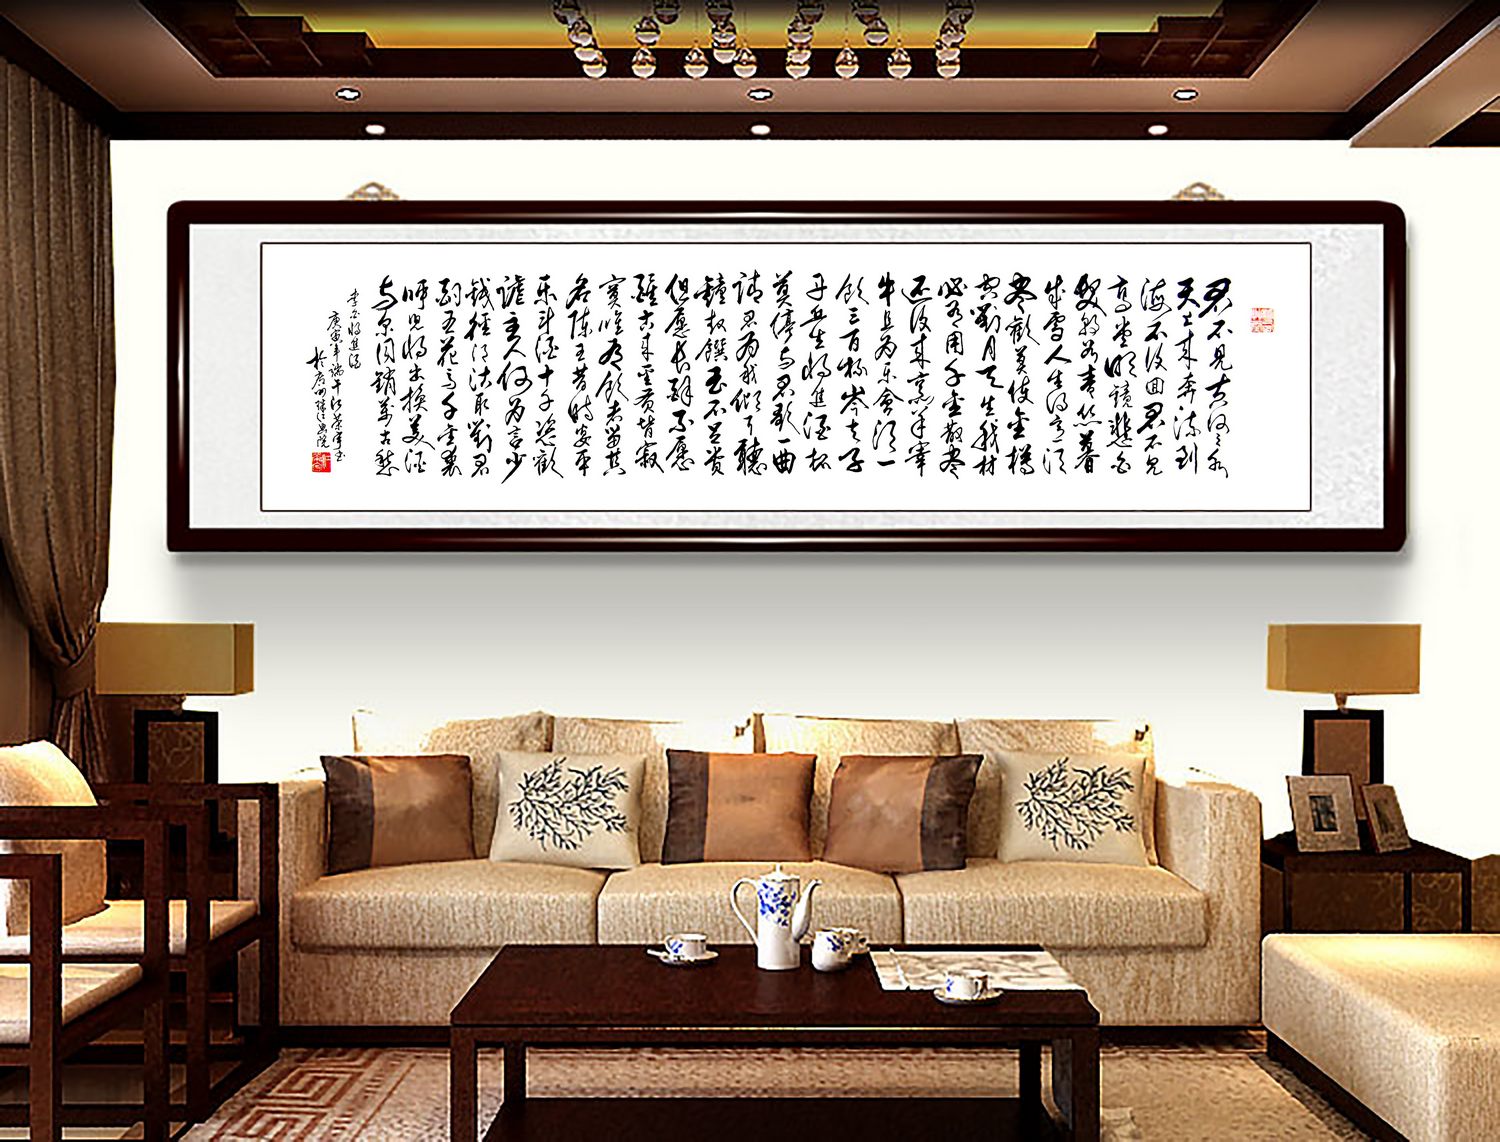 君不見黄河之水
天上来奔流到
海不復回君不見
高堂明鏡悲白
髮朝如青絲暮
成雪人生得意須
盡歡莫使金樽
空對月天生我材
必有用千金散盡
还復来烹羊宰
牛且为樂會須一
飲三百杯岑夫子
丹丘生將進酒杯
莫停与君歌一曲
請君为我傾耳聽
鐘鼓饌玉不足貴
但愿長醉不愿
醒古来聖賢皆寂
寞唯有飲者留其
名陳王昔時宴平
樂斗酒十千恣歡
謔主人何为言少
錢徑須沽取對君
酌五花馬千金裘
呼兒將出換美酒
与尔同銷萬古愁
李白將進酒
庚寅年端午